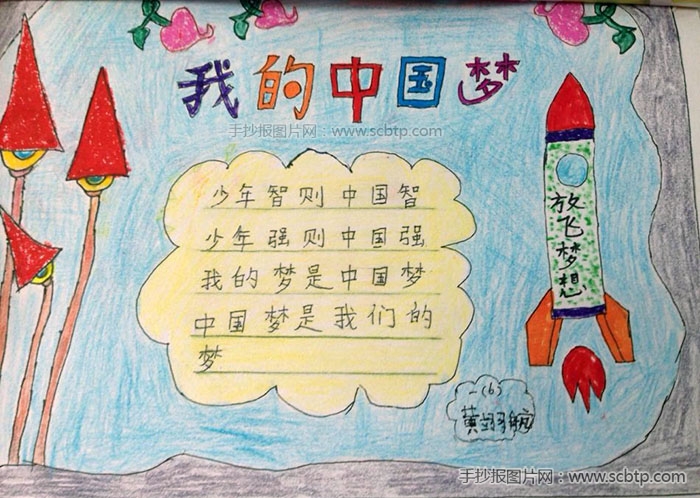 我的中国梦
手抄报图片网：www.scbtp.com
少年智则中国智
少年强则中国强
我的梦是中国梦
中国梦是我们的
梦
放飞梦想
一(6)
手抄报图片网：www.scbtp.com